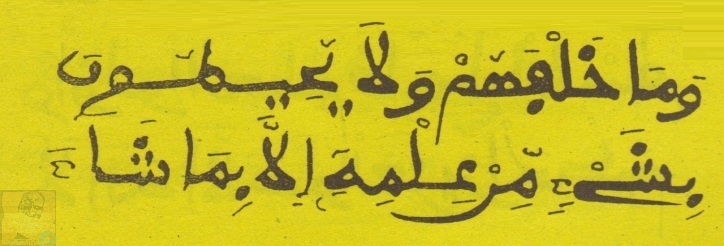 وَمَا خَلْفَهُمْ وَلَا يُحِيطُونَ
بِشَيْءٍ مِّنْ عِلْمِهِ إِلَّا بِمَا شَاءَ